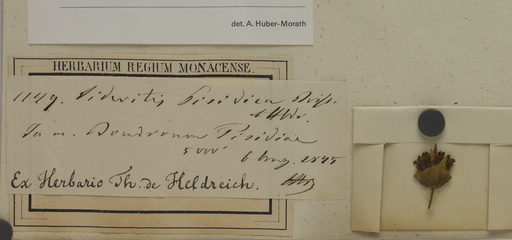 det. A. Huber-Morath
HERBARIUM REGIUM MONACENSE.
1149. Sideritis Pisidica Boiss.
& Hldr.
In m. Boudroum Pisidiae
5000' 6 Aug. 1845
Ex Herbario Th. de Heldreich.